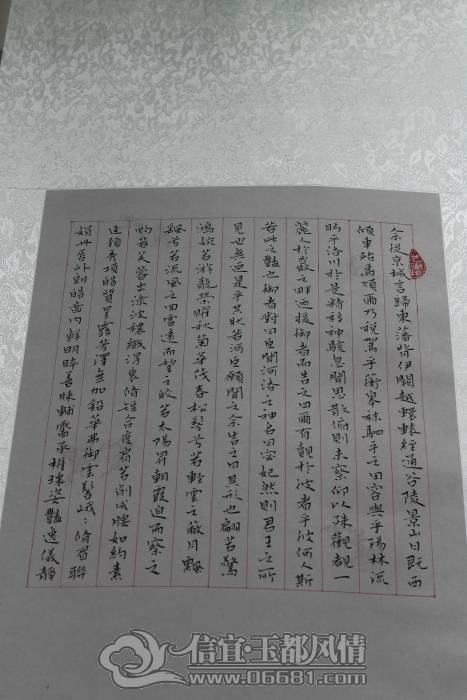 余從京城言歸東藩背伊闕越轘轅經通谷陵景山日既西
傾車殆馬煩爾乃稅駕乎蘅皋秣駟乎芝田容與乎陽林流
眄乎洛川於是精移神駭忽焉思散俯則未察仰以殊觀覩一
麗人於巖之畔迺援御者而告之曰爾有覿於彼者乎彼何人斯
若此之豔也御者對曰臣聞河洛之神名曰宓妃然則君王之所
見也無迺是乎其狀若何臣願聞之余告之曰其形也翩若驚
鴻婉若游龍榮曜秋菊華茂春松髣兮若輕雲之蔽月飄
飖兮若流風之回雪遠而望之皎若太陽昇朝霞迫而察之
灼若芙蓉出淥波穠纖得衷脩短合度肩若削成腰如約素
延頸秀項皓質呈露芳澤無加鉛華弗御雲髻峨々脩眉聯
娟丹唇外朗皓齒内鮮明眸善睞靨輔承權瓌姿豔逸儀靜
信宜·玉都风情
www.06681.com